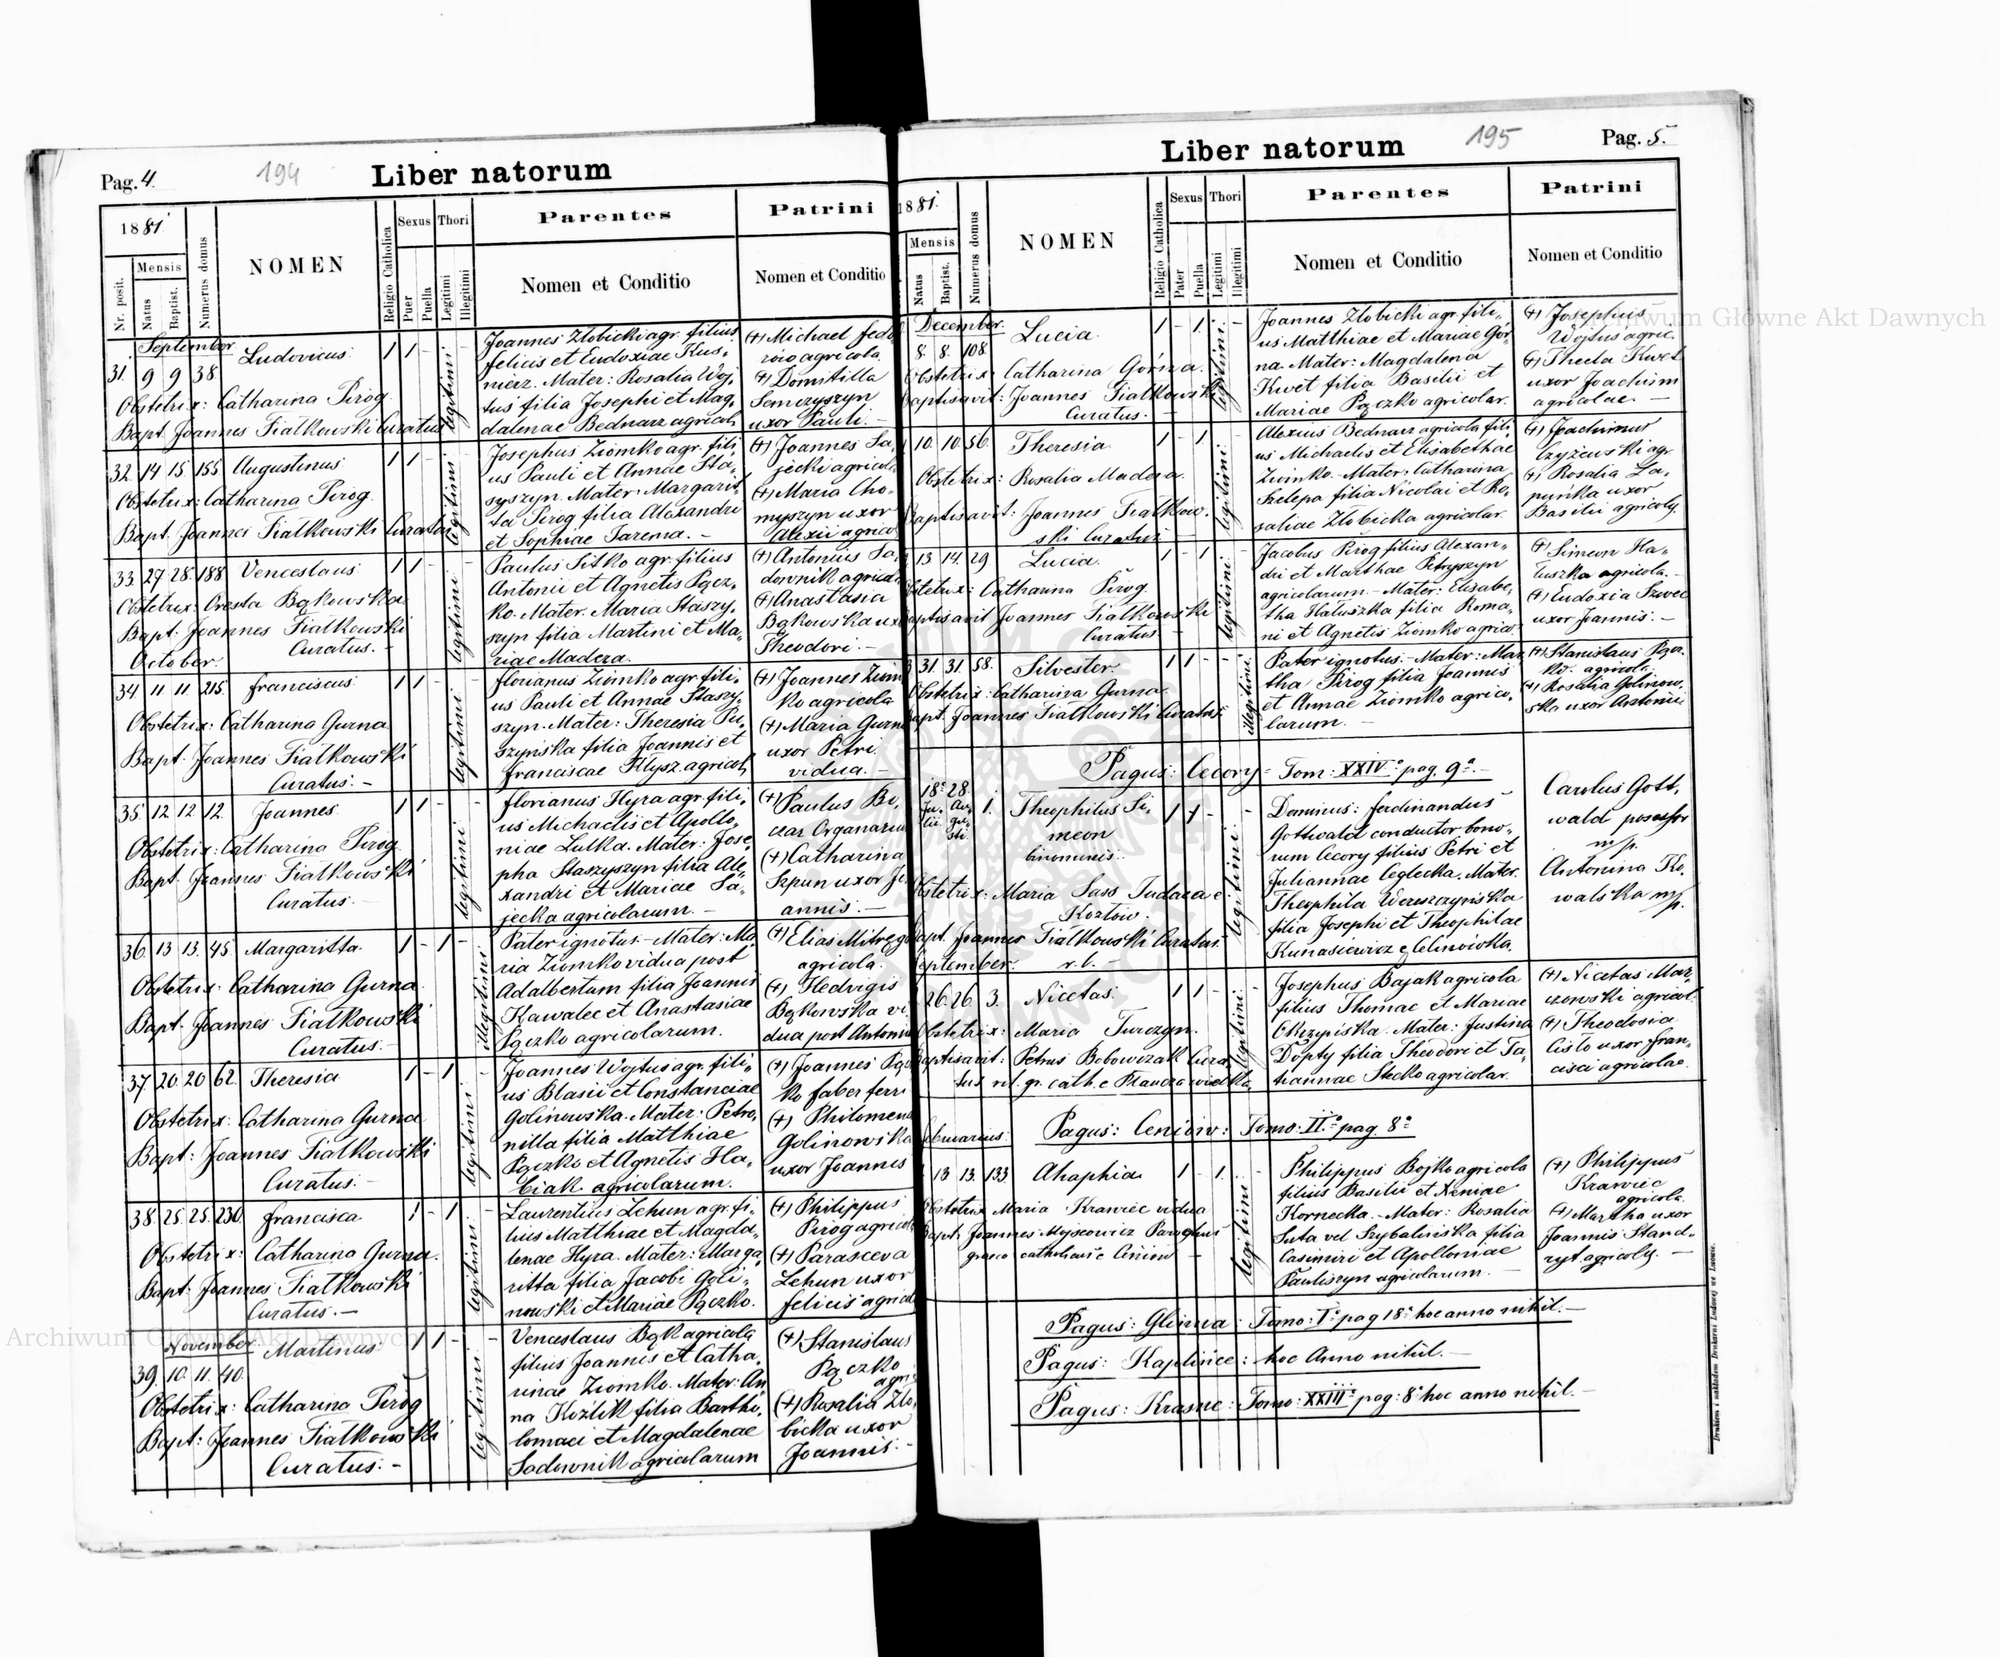 Pag. 4.
194
Liber natorum
1881
Nr. posit.
Mensis
Natus
Baptist.
Numerus domus
NOMEN
Religio Catholica
Sexus
Puer
Puella
Thori
Legitimi
Illegitimi
Parentes
Nomen et Conditio
Patrini
Nomen et Conditio
September
31. 9 9 38. Ludovicus. 1 1 - legitimi -
Obstetrix: Catharina Pirog
Bapt. Joannes Fiałkowski Curatus
Joannes Złobicki agr. filius
felicis et Eudoxiae Kus,
nierz. Mater: Rosalia Woj,
tus filia Josephi et Mag,
dalenae Bednarz agricol,
(+) Michael fedo
rów agricola
(+) Domitilla
Semczyszyn
uxor Pauli. -
32. 14 15 155 Augustinus. 1 1 - legitimi -
Obstetrix: Catharina Pirog.
Bapt. Joannes Fiałkowski Curatus
Josephus Ziomko agr. fili,
us Pauli et Annae Sta,
syszyn. Mater: Margarit,
ta Pirog filia Alexandri
et Sophiae Jarema. -
(+) Joannes Sa,
jecki agricol.
(+) Maria Cho,
myszyn uxor
Alexii agricol
33. 27 28. 188. Venceslaus. 1 1 - legitimi -
Obstetrix: Oresta Bąkowska
Bapt. Joannes Fiałkowski
Curatus. -
Paulus Sitko agr. filius
Antonii et Agnetis Pącz,
ko. Mater. Maria Staszy,
szyn filia Martini et Ma,
riae Madeza.
(+) Antonius Sa,
downik agricol
(+) Anastasia
Bąkowska ux
Theodori. -
October.
34 11 11 215. franciscus. 1 1 - legitimi -
Obstetrix: Catharina Gurna
Bapt. Joannes Fiałkowski
Curatus. -
florianus Ziomko agr. fili,
us Pauli et Annae Staszy,
szyn. Mater: Theresia Pu,
szyńska filia Joannis et
franciscae Hłysz. agricol,
(+) Joannes Ziom
ko agricola
(+) Maria Gurna
uxor Petri
vidua. -
35. 12 12 12. Joannes. 1 1 - legitimi -
Obstetrix: Catharina Pirog
Bapt. Joannes Fiałkowski
Curatus. -
florianus Hyra agr. fili,
us Michaelis et Apollo,
niae Lulka. Mater: Jose,
pha Staszyszyn filia Ale,
xandri et Mariae Sa,
jecka agricolarum. -
(+) Paulus Be,
czar Organarius
(+) Catharina
Szpun uxor Jo
annis. -
36. 13 13. 45. Margaritta. 1 - 1 - illegitimi
Obstetrix: Catharina Gurna.
Bapt. Joannes Fiałkowski
Curatus. -
Pater ignotus. - Mater: Ma,
ria Ziomko vidua post
Adalbertum filia Joannis
Kawalec et Anastasiae
Pączko agricolarum.
(+) Elias Mitręga
agricola.
(+) Hedvigis
Bąkowska vi
dua post Antonium
37 20. 20 62. Theresia 1 - 1 - legitimi -
Obstetrix: Catharina Gurna
Bapt: Joannes Fiałkowski
Curatus. -
Joannes Wojtus agr. fili,
us Blasii et Constanciae
Golinowska. Mater: Petro,
nilla filia Matthiae
Pączko et Agnetis Ha,
biak agricolarum.
(+) Joannes Pącz
ko faber ferri
(+) Philomena
Golinowska
uxor Joannis
38. 25. 25. 230. francisca 1 - 1 legitimi -
Obstetrix: Catharina Gurna.
Bapt. Joannes Fiałkowski
Curatus. -
Laurentius Zehun agr. fi,
lius Matthiae et Magda,
lenae Hyra. Mater: Marga
ritta filia Jacobi Goli,
nowski et Mariae Pączko.
(+) Philippus
Pirog agricola
(+) Parasceva
Zehun uxor
felicis agricol
November.
39. 10. 11. 40. Martinus. 1 1 - legitimi -
Obstetrix: Catharina Pirog
Bapt: Joannes Fiałkowski
Curatus. -
Venceslaus Bąk agricola
filius Joannis et Catha,
rinae Ziomko. Mater: An
na Kozlik filia Bartho,
lomaei et Magdalenae
Sadownik agricolarum
(+) Stanislaus
Pączko
agri,
(+) Rosalia Zło,
bicka uxor
Joannis. -
Liber natorum
195
Pag. 5.
1881.
Mensis
Natus
Baptist.
Numerus domus
NOMEN
Religio Catholica
Sexus
Pater
Puella
Thori
Legitimi
Illegitimi
Parentes
Nomen et Conditio
Patrini
Nomen et Conditio
December.
8. 8. 108. Lucia. 1 - 1. legitimi -
Obstetrix: Catharina Górna.
Baptisavit: Joannes Fiałkowski
Curatus. -
Joannes Złobicki agr. fili,
us Matthiae et Mariae Gór,
na. Mater: Magdalena
Kwet filia Basilii et
Mariae Pączko agricolar.
(+) Josephus
Wojtus agric.
(+) Thecla Kwet
uxor Joachim
agricolae. -
10. 10. 56. Theresia 1 - 1 - legitimi -
Obstetrix: Rosalia Madeza.
Baptisavit: Joannes Fiałkow,
ski Curatus -
Alexius Bednarz agricola fili,
us Michaelis et Elisabethae
Ziomko. Mater: Catharina
Szelepa filia Nicolai et Ro,
saliae Złobicka agricolar.
(+) Joachimus
Czyżewski agr.
(+) Rosalia Ła,
puńka uxor
Basilii agricolę.
13 14. 29 Lucia. 1 - 1 - legitimi -
Obstetrix: Catharina Pirog.
Baptisavit Joannes Fiałkowski
Curatus. -
Jacobus Pirog filius Alexan,
dri et Marthae Petryszyn
agricolarum. - Mater: Elisabe,
tha Hałuszka filia Roma,
ni et Agnetis Ziomko agrico.
(+) Simeon Ha,
łuszka agricola. -
(+) Eudoxia Szwec
uxor Joannis. -
31 31 58. Silvester. 1 1 - - illegitimi
Obstetrix: Catharina Gurna.
Bapt. Joannes Fiałkowski Curatus.
Pater ignotus. - Mater: Mar,
tha Pirog filia Joannis
et Annae Ziomko agrico,
larum. -
(+) Stanislaus Pącz
ko. agricola.
(+) Rosalia Golinow,
ska uxor Antonii
Pagus: Cecory - Tom: XXIVo pag. 9a. -
18a 28.
Ju, Au,
lii gu,
sti.
1. Theophilus Si,
meon
binominis.
1 1 - legitimi -
Obstetrix: Maria Sass Judaea e
Kozłow.
Bapt. Joannes Fiałkowski Curatus.
r. l. -
Dominus: ferdinandus
Gottwald conductor bono,
rum Cecory filius Petri et
Juliannae Ceglecka. Mater.
Theophila Wereszczyńska
filia Josephi et Theophilae
Kunasiewicz e Celinówka.
Carolus Gott,
wald posessor
m/p.
Antonina Ko,
walska m/p.
September.
26. 26 3. Nicetas. 1 1 - legitimi -
Obstetrix: Maria Turczyn.
Baptisavit: Petrus Bobowczak Cura,
tus rit. gr. cath. e Płaucza wielka
Josephus Bajak agricola
filius Thomae et Mariae
Okrzepiska. Mater: Justina
Dopty filia Theodori et Ta,
tiannae Stecko agricolar.
(+) Nicetas Maz,
czowski agricol.
(+) Theodosia
Cisło uxor fran,
cisci agricolae.
Februarius.
Pagus: Ceniów: Tomo: IIo pag. 8a
13 13. 133. Ahaphia. 1 - 1. - legitimi -
Obstetrix Maria Krawiec vidua
Bapt. Joannes Myscowicz Parochus
graeco catholicus e Ceniów -
Philippus Bojko agricola
filius Basilii et Xeniae
Kornecka. - Mater: Rosalia
Suta vel Szybalińska filia
Casimiri et Apolloniae
Pauliszyn agricolarum. -
(+) Philippus
Krawiec
agricola.
(+) Martha uxor
Joannis Stand,
ryt agricolę. -
Pagus: Glinna: Tomo: Io pag 18a hoc anno nihil. -
Pagus: Kaplińce: hoc Anno nihil. -
Pagus: Krasne: Tomo: XXIIIo pag: 8a hoc anno nihil. -
Drukiem i nakładem Drukarni Ludowej we Lwowie.
Archiwum Główne Akt Dawnych
Archiwum Główne Akt Dawnych